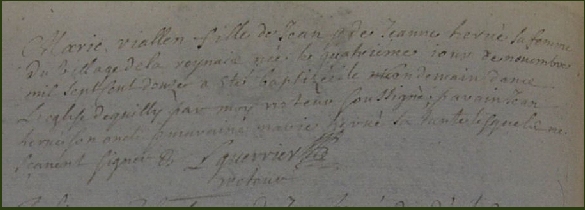 Marie viallen fille de Jean & de Jeanne hervé sa femme
du village de la née le quatrieme iour de novembre
mil sept cent douze a esté baptizée le lendemain dans
L'eglise de quilly par moy recteur soussigné; parain Jean
hervé son oncle & maraine marie hervé sa tante lesquels ne
scavent signer & L guerrier
recteur